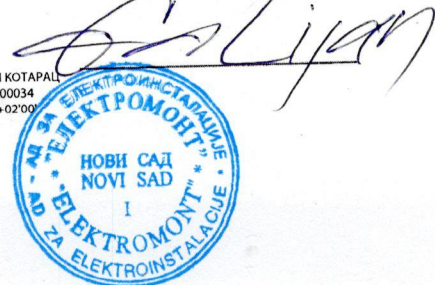 КОТАРАЦ
00034
+02'00'
АД ЗА ЕЛЕКТРОИНСТАЛАЦИЈЕ
"ЕЛЕКТРОМОНТ"
НОВИ САД
NOVI SAD
I
"ELEKTROMONT"
AD ZA ELEKTROINSTALACIJE